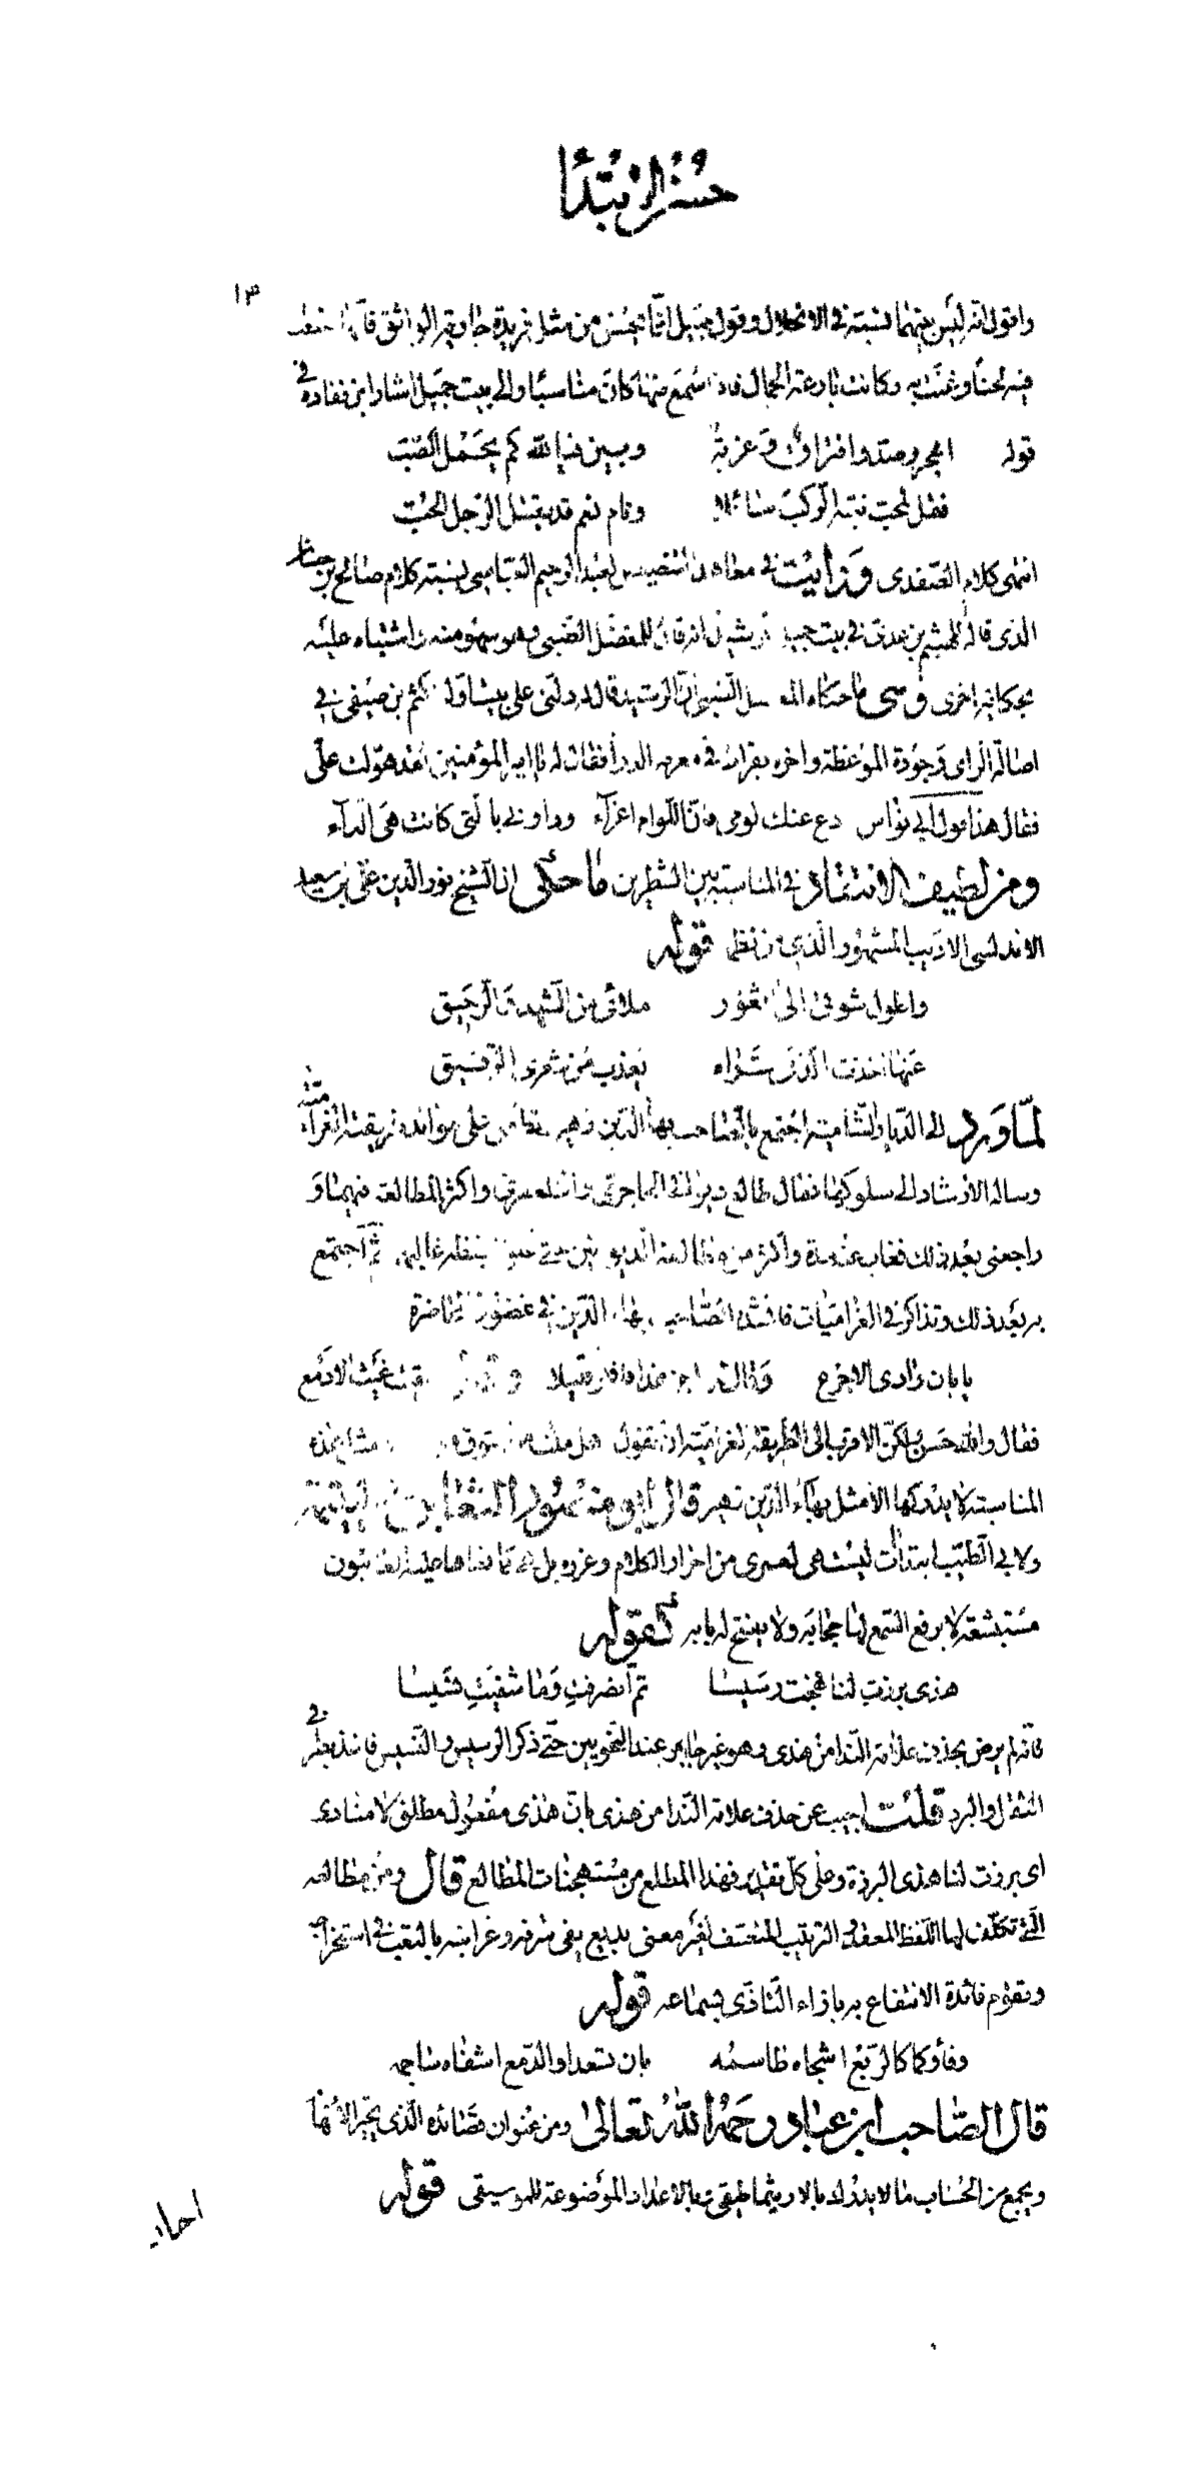 حسن الابتدا
١٣
واقول انه ليس بينهما نسبة في الانحلال وقول جميل انما يحسن من مثل فريدة جارية الواثق فانها
فيه لحنا وغنت به وكانت بارعة الجمال فاذا سمع منها كان مناسبا والى بيت جميل اشار ابن نفادة في
قوله اهجر وصد وافتراق وغربة وبين فيا لله كم يحمل الصب
فقل لمحب نبه الركب سائلا ونام نعم قد يقتل الرجل الحب
انتهى كلام الصفدي ورايت في معاهد التنصيص لعبد الرحيم العباسي نسبة كلام صالح بن حسان
الذي قاله للهيثم بن عدي في بيت جميل الى انه قال للمفضل الضبي وهو سهو منه واشتباه عليه
بحكاية اخرى وهى ما حكاه المفضل الضبي ان الرشيد قال له دلني على بيت اوله اكثم بن صيفي في
اصالة الراى وجودة الموعظة واخره بقراط في معرفة الداء فقال له يا امير المؤمنين لقد هولت علي
فقال هذا قول ابي نواس دع عنك لومي فان اللوم اغراء وداوني بالتي كانت هي الداء
ومن لطيف الانتقاد في المناسبة بين الشطرين ما حكى ان الشيخ نور الدين علي بن سعيد
الاندلسي الاديب المشهور الذي من نظمه قوله
واطول شوقي الى ثغور ملأى من الشهد والرحيق
عنها اخذت الذي تراه يعذب من شعري الرقيق
لما ورد الى الديار الشامية اجتمع بالصاحب بهاء الدين زهير وتطفل على موائد طريقته الغرامية
وساله الارشاد الى سلوكها فقال طالع ديوان الحاجري والتلعفري واكثر المطالعة فيهما و
راجعني بعد ذلك فغاب عنه مدة واكثر من مطالعة الديوانين حتى حفظ غالبهما ثم اجتمع
به بعد ذلك وتذاكر في الغراميات فانشده الصاحب بهاء الدين في غضون المحاضرة
يا بان وادي الاجرع وقال اجز هذا فافكر قليلا وقال سقيت غيث الادمع
فقال والله حسن ولكن الاقرب الى الطريقة الغرامية ان تقول هل ملت من شوق معي ومثل هذه
المناسبة لا يدركها الا مثل بهاء الدين زهير قال ابو منصور الثعالبي في اليتيمة
ولابي الطيب ابتدات ليست هي لعمري من احرار الكلام وغرره بل هي كما نعاها عليه العائبون
مستبشعة لا يرفع السمع لها حجابه ولا ينفتح له بابه كقوله
هذى برزت لنا فهجت رسيسا ثم انصرفت وما شفيت نسيسا
فانه لم يرض بحذف علامة الندا من هذى وهو غير جايز عند النحويين حتى ذكر الرسيس والنسيس فاخذ بطرفي
الثقل والبرد قلت اجيب عن حذف علامة الندا من هذى بان هذى مفعول مطلق لا منادى
اى برزت لنا هذى البرزة وعلى كل تقدير فهذا المطلع من مستهجنات المطالع قال ومن مطالعه
التي تكلف لها اللفظ المعقد والترتيب المتعسف لغير معنى بديع يفى شرفه وغرابته بالتعب في استخراجه
وتقوم فائدة الانتفاع به بازاء التاذى بسماعه قوله
وفاؤكما كالربع اشجاه طاسمه بان تسعدا والدمع اشفاه ساجمه
قال الصاحب ابن عباد رحمه الله تعالى ومن عنوان قصائده الذي يحير الافهام
ويجمع من الحساب ما لا يدرك بالارثماطيقى وبالاعداد الموضوعة للموسيقى قوله
احاد